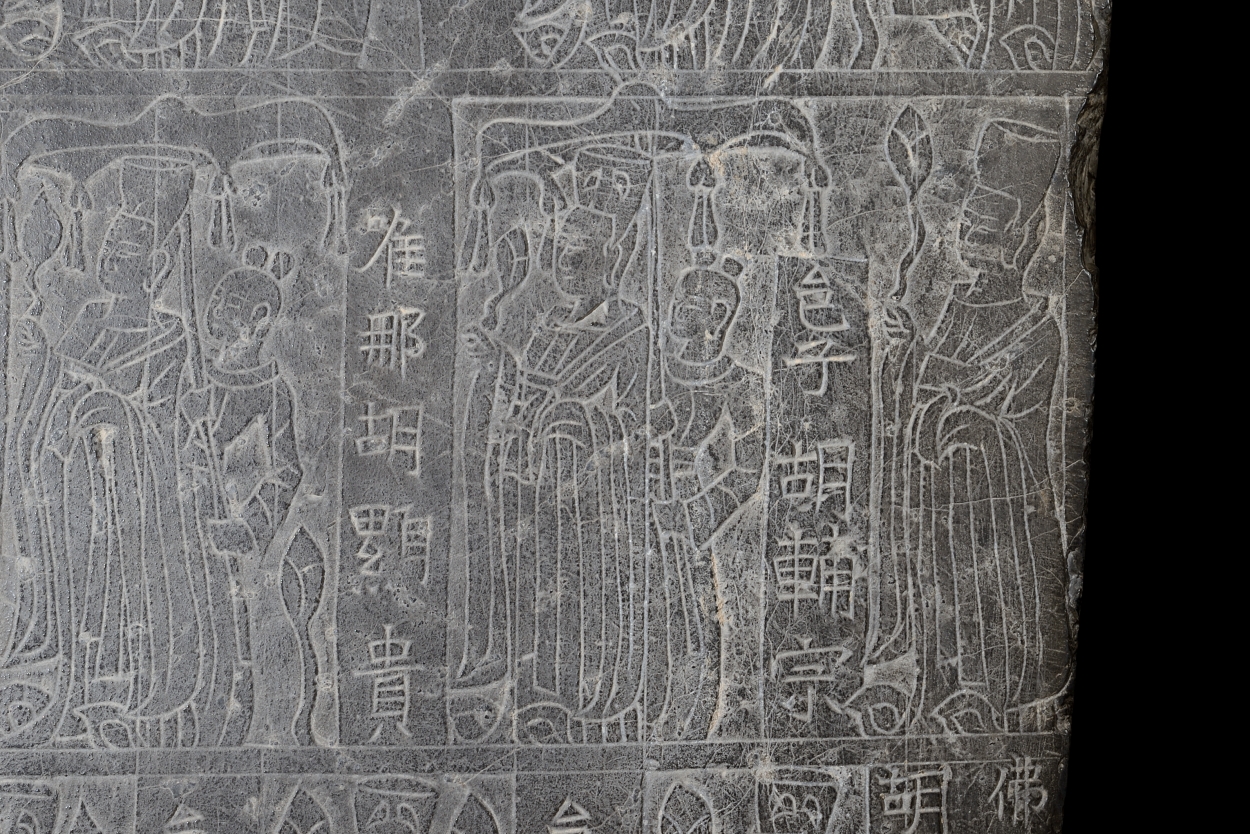 邑子胡輔宗
唯那胡顯貴
佛
胡